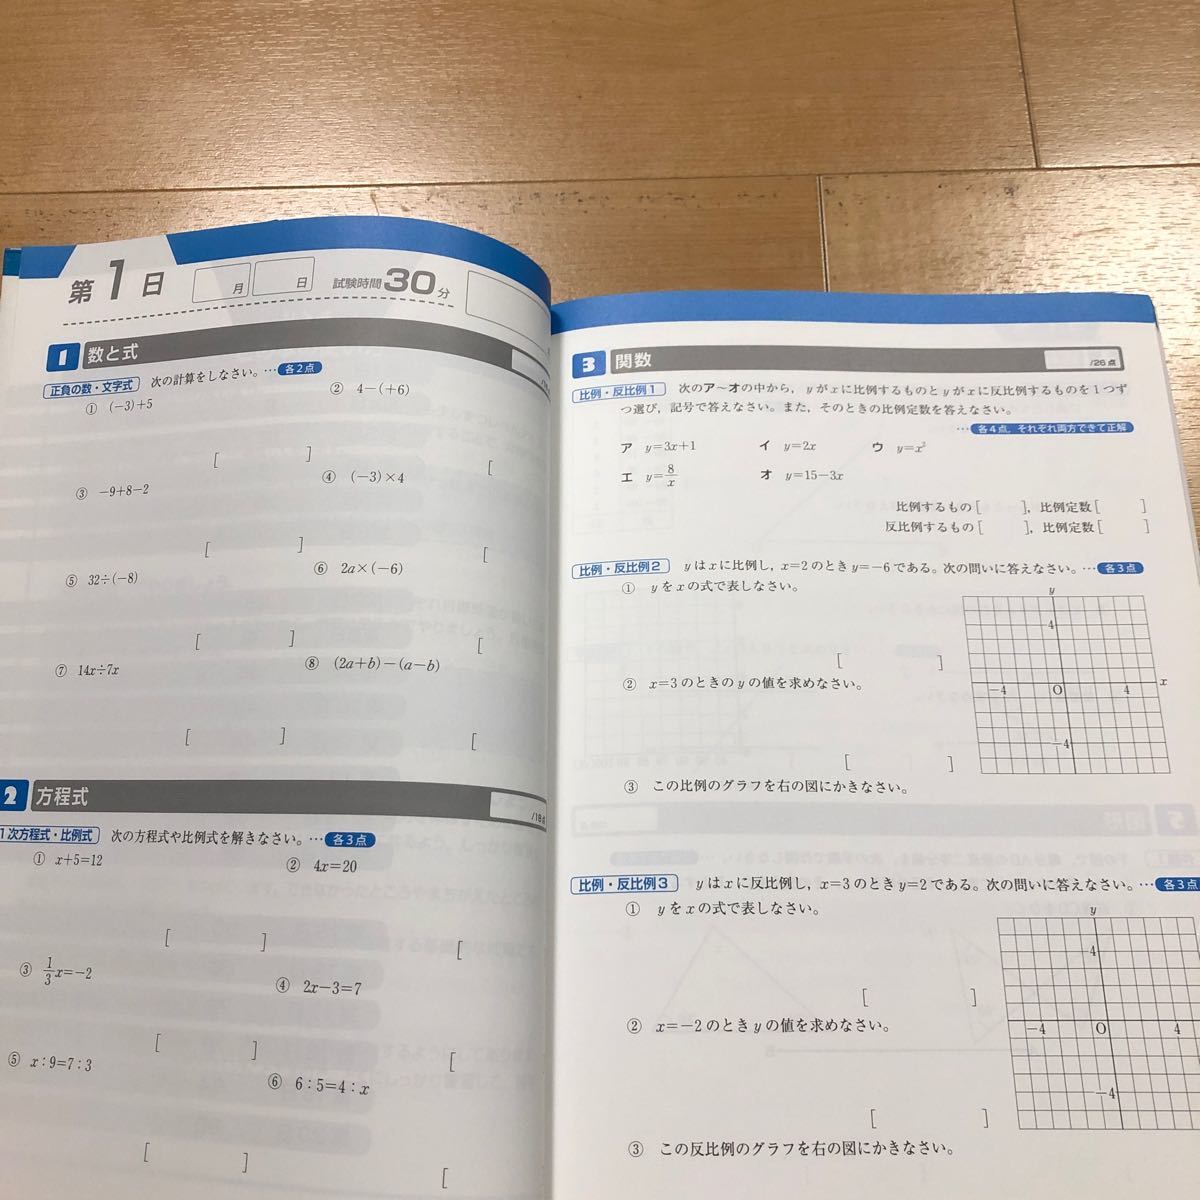 第1日
月
日
試験時間30分
1 数と式
正負の数・文字式 次の計算をしなさい。…各2点
① (−3)+5
② 4−(+6)
[ ]
[
③ −9+8−2
④ (−3)×4
[ ]
[
⑤ 32÷(−8)
⑥ 2a×(−6)
[ ]
[
⑦ 14x÷7x
⑧ (2a+b)−(a−b)
[ ]
[
2 方程式
/18点
1次方程式・比例式 次の方程式や比例式を解きなさい。…各3点
① x+5=12
② 4x=20
[ ]
[
③ 1/3x=−2
④ 2x−3=7
[ ]
[
⑤ x：9=7：3
⑥ 6：5=4：x
[ ]
[
3 関数
/26点
比例・反比例1 次のア〜オの中から，yがxに比例するものとyがxに反比例するものを1つず
つ選び，記号で答えなさい。また，そのときの比例定数を答えなさい。
…各4点，それぞれ両方できて正解
ア y=3x+1 イ y=2x ウ y=x²
エ y=8/x オ y=15−3x
比例するもの[ ]，比例定数[ ]
反比例するもの[ ]，比例定数[ ]
比例・反比例2 yはxに比例し，x=2のときy=−6である。次の問いに答えなさい。…各3点
① yをxの式で表しなさい。
[ ]
② x=3のときのyの値を求めなさい。
[ ]
③ この比例のグラフを右の図にかきなさい。
y
4
−4 O 4 x
−4
比例・反比例3 yはxに反比例し，x=3のときy=2である。次の問いに答えなさい。…各3点
① yをxの式で表しなさい。
[ ]
② x=−2のときyの値を求めなさい。
[ ]
③ この反比例のグラフを右の図にかきなさい。
y
4
−4 O 4
−4